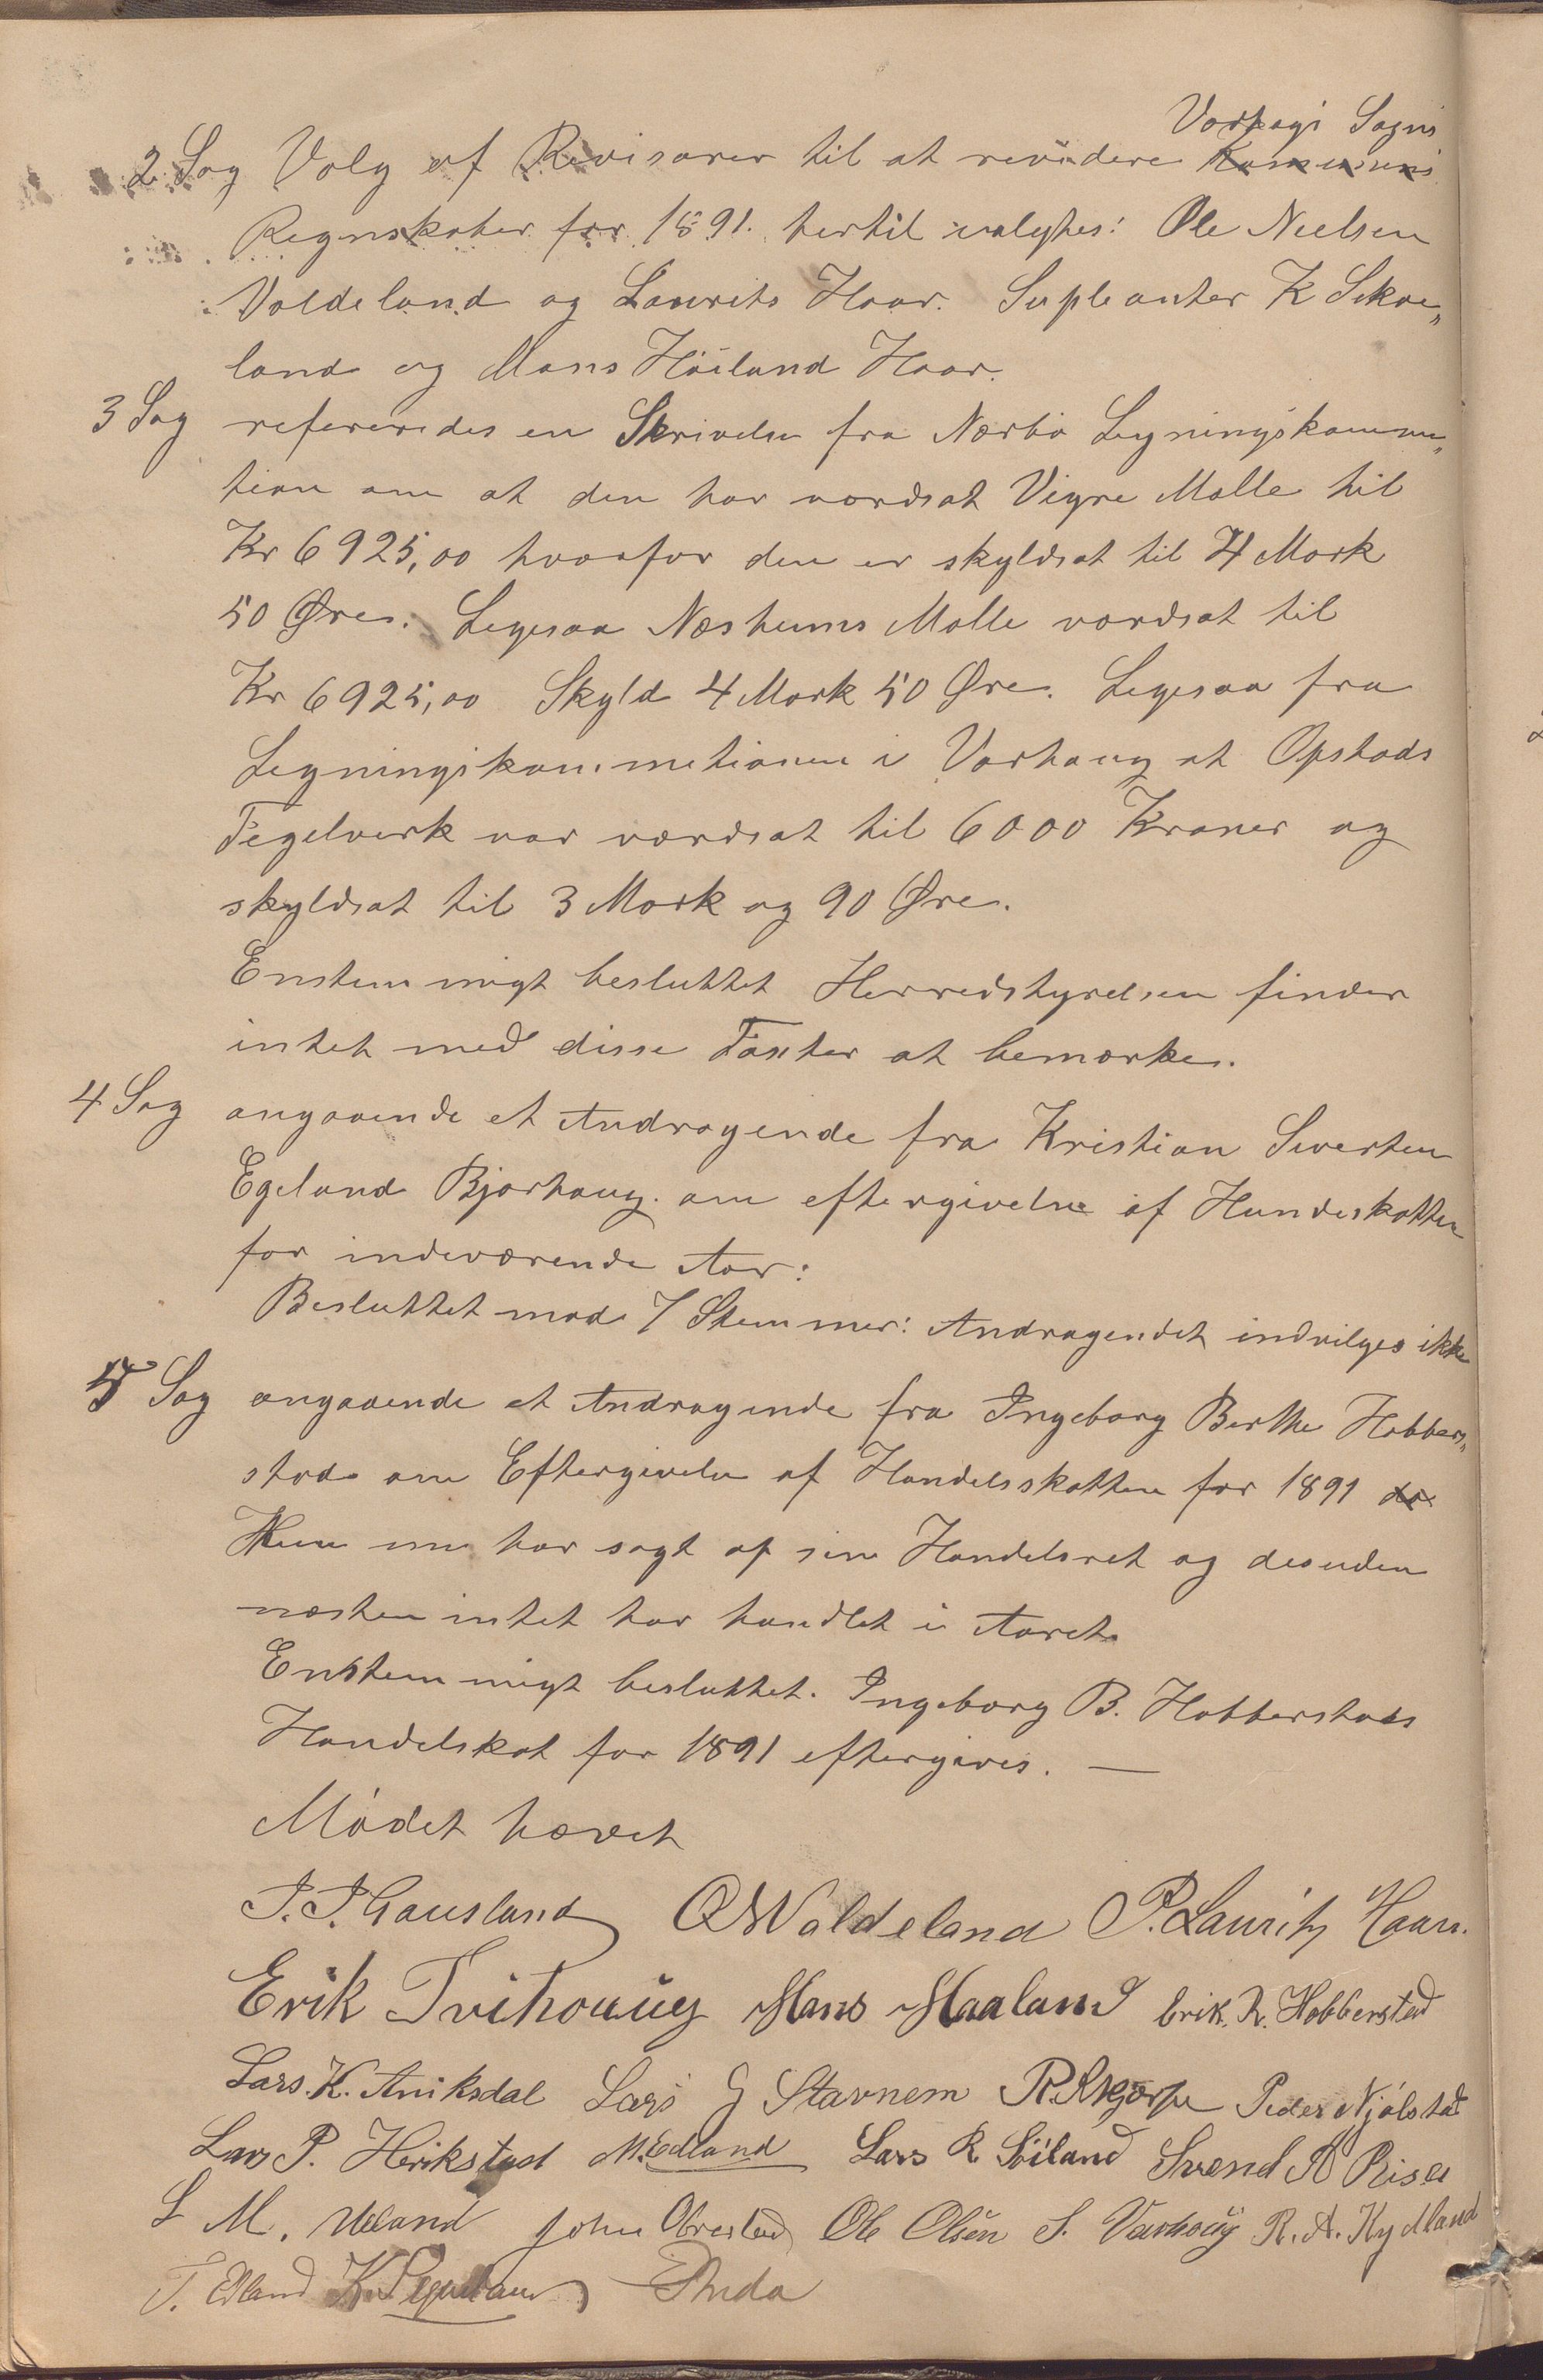 Varhaugs Sogns
2 Sag Valg af Revisorer til at revidere Kommunens
Regnskaber for 1891. hertil valgtes: Ole Nielsen
Valdeland og Laurits Haar. Supleanter K Skræ„
land og Mons Höiland Haar.
3 Sag refereredes en Skrivelse fra Nærbö Ligningskommi„
tion om at den har værdsat Vigre Mølle til
Kr 6925,00 hvorfor den er skyldsat til 4 Mark
50 Øre. Ligesaa Næsheims Mølle værdsat til
Kr 6925,00 Skyld 4 Mark 50 Øre. Ligesaa fra
Ligningskommitionen i Varhaug at Opstads
Tegelverk var værdsat til 6000 Kroner og
skyldsat til 3 Mark og 90 Øre.
Enstemmigt besluttet Herredstyrelsen finder
intet med disse Taxter at bemærke.
4 Sag angaaende et Andragende fra Kristian Sivertsen
Egeland Bjorhaug. om eftergivelse af Hundeskatten
for indeværende Aar:
Besluttet mod 7 Stemmer: Andragendet indvilges ikke
5 Sag angaaende et Andragende fra Ingeborg Berthe Hobbers„
stad om Eftergivelse af Handelsskatten for 1891 da
Hun nu har sagt op sin Handelsret og desuden
næsten intet har handlet i Aaret.
Enstemmigt besluttet. Ingeborg B. Hobberstads
Handelskat for 1891 eftergives. —
Mödet hævet
J. J. Gausland O N Valdeland P. Lauritz Haar.
Erik Tvihoug Mons Maaland Erik. R. Hobberstad
Lars. K. Aniksdal Lars G Stavnem R. Skjærpe Peder Njølstad
Lars P. Herikstad M. Edland Lars R Söiland Svend A Risa
L M. Ueland John Obrestad Ole Olsen S. Varhoug R. A. Kydland
T. Edland